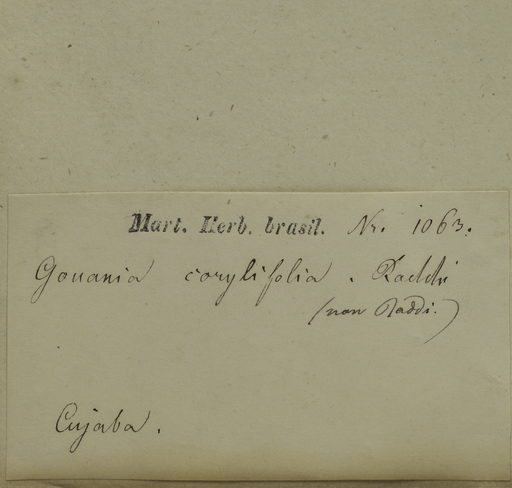 Mart. Herb. brasil. Nr. 1063.
Gouania corylifolia. Raddi
(non Raddi.)
Cujaba.